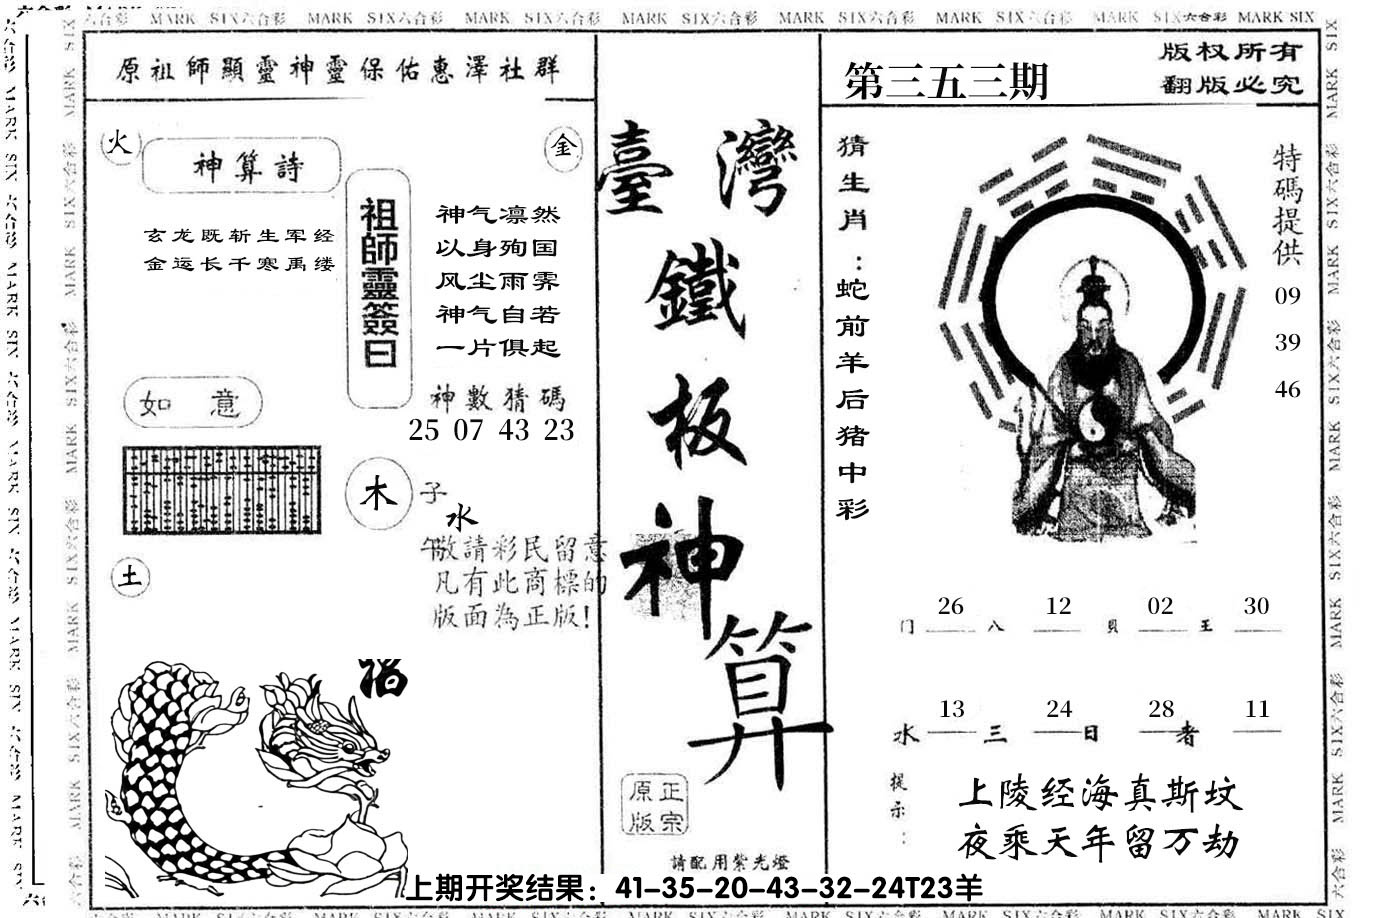 MARK SIX六合彩 MARK SIX六合彩 MARK SIX六合彩 MARK SIX六合彩 MARK SIX六合彩 MARK SIX六合彩 MARK SIX六合彩 MARK SIX
原祖師顯靈神靈保佑惠澤社群
火
神算詩
金
玄龙既斩生军经
金运长千寒禹缕
祖師靈簽曰
神气凛然
以身殉国
风尘雨霁
神气自若
一片俱起
如 意
神數猜碼
25 07 43 23
木
子
水
午
土
敬請彩民留意
凡有此商標的
版面為正版!
福
臺灣
鐵
板
神
算
原正
版宗
請配用紫光燈
第三五三期
版权所有
翻版必究
猜生肖:蛇前羊后猪中彩
特碼提供
09
39
46
门 26 八 12 貝 02 王 30
水 13 三 24 日 28 者 11
提示:
上陵经海真斯坟
夜乘天年留万劫
上期开奖结果：41-35-20-43-32-24T23羊